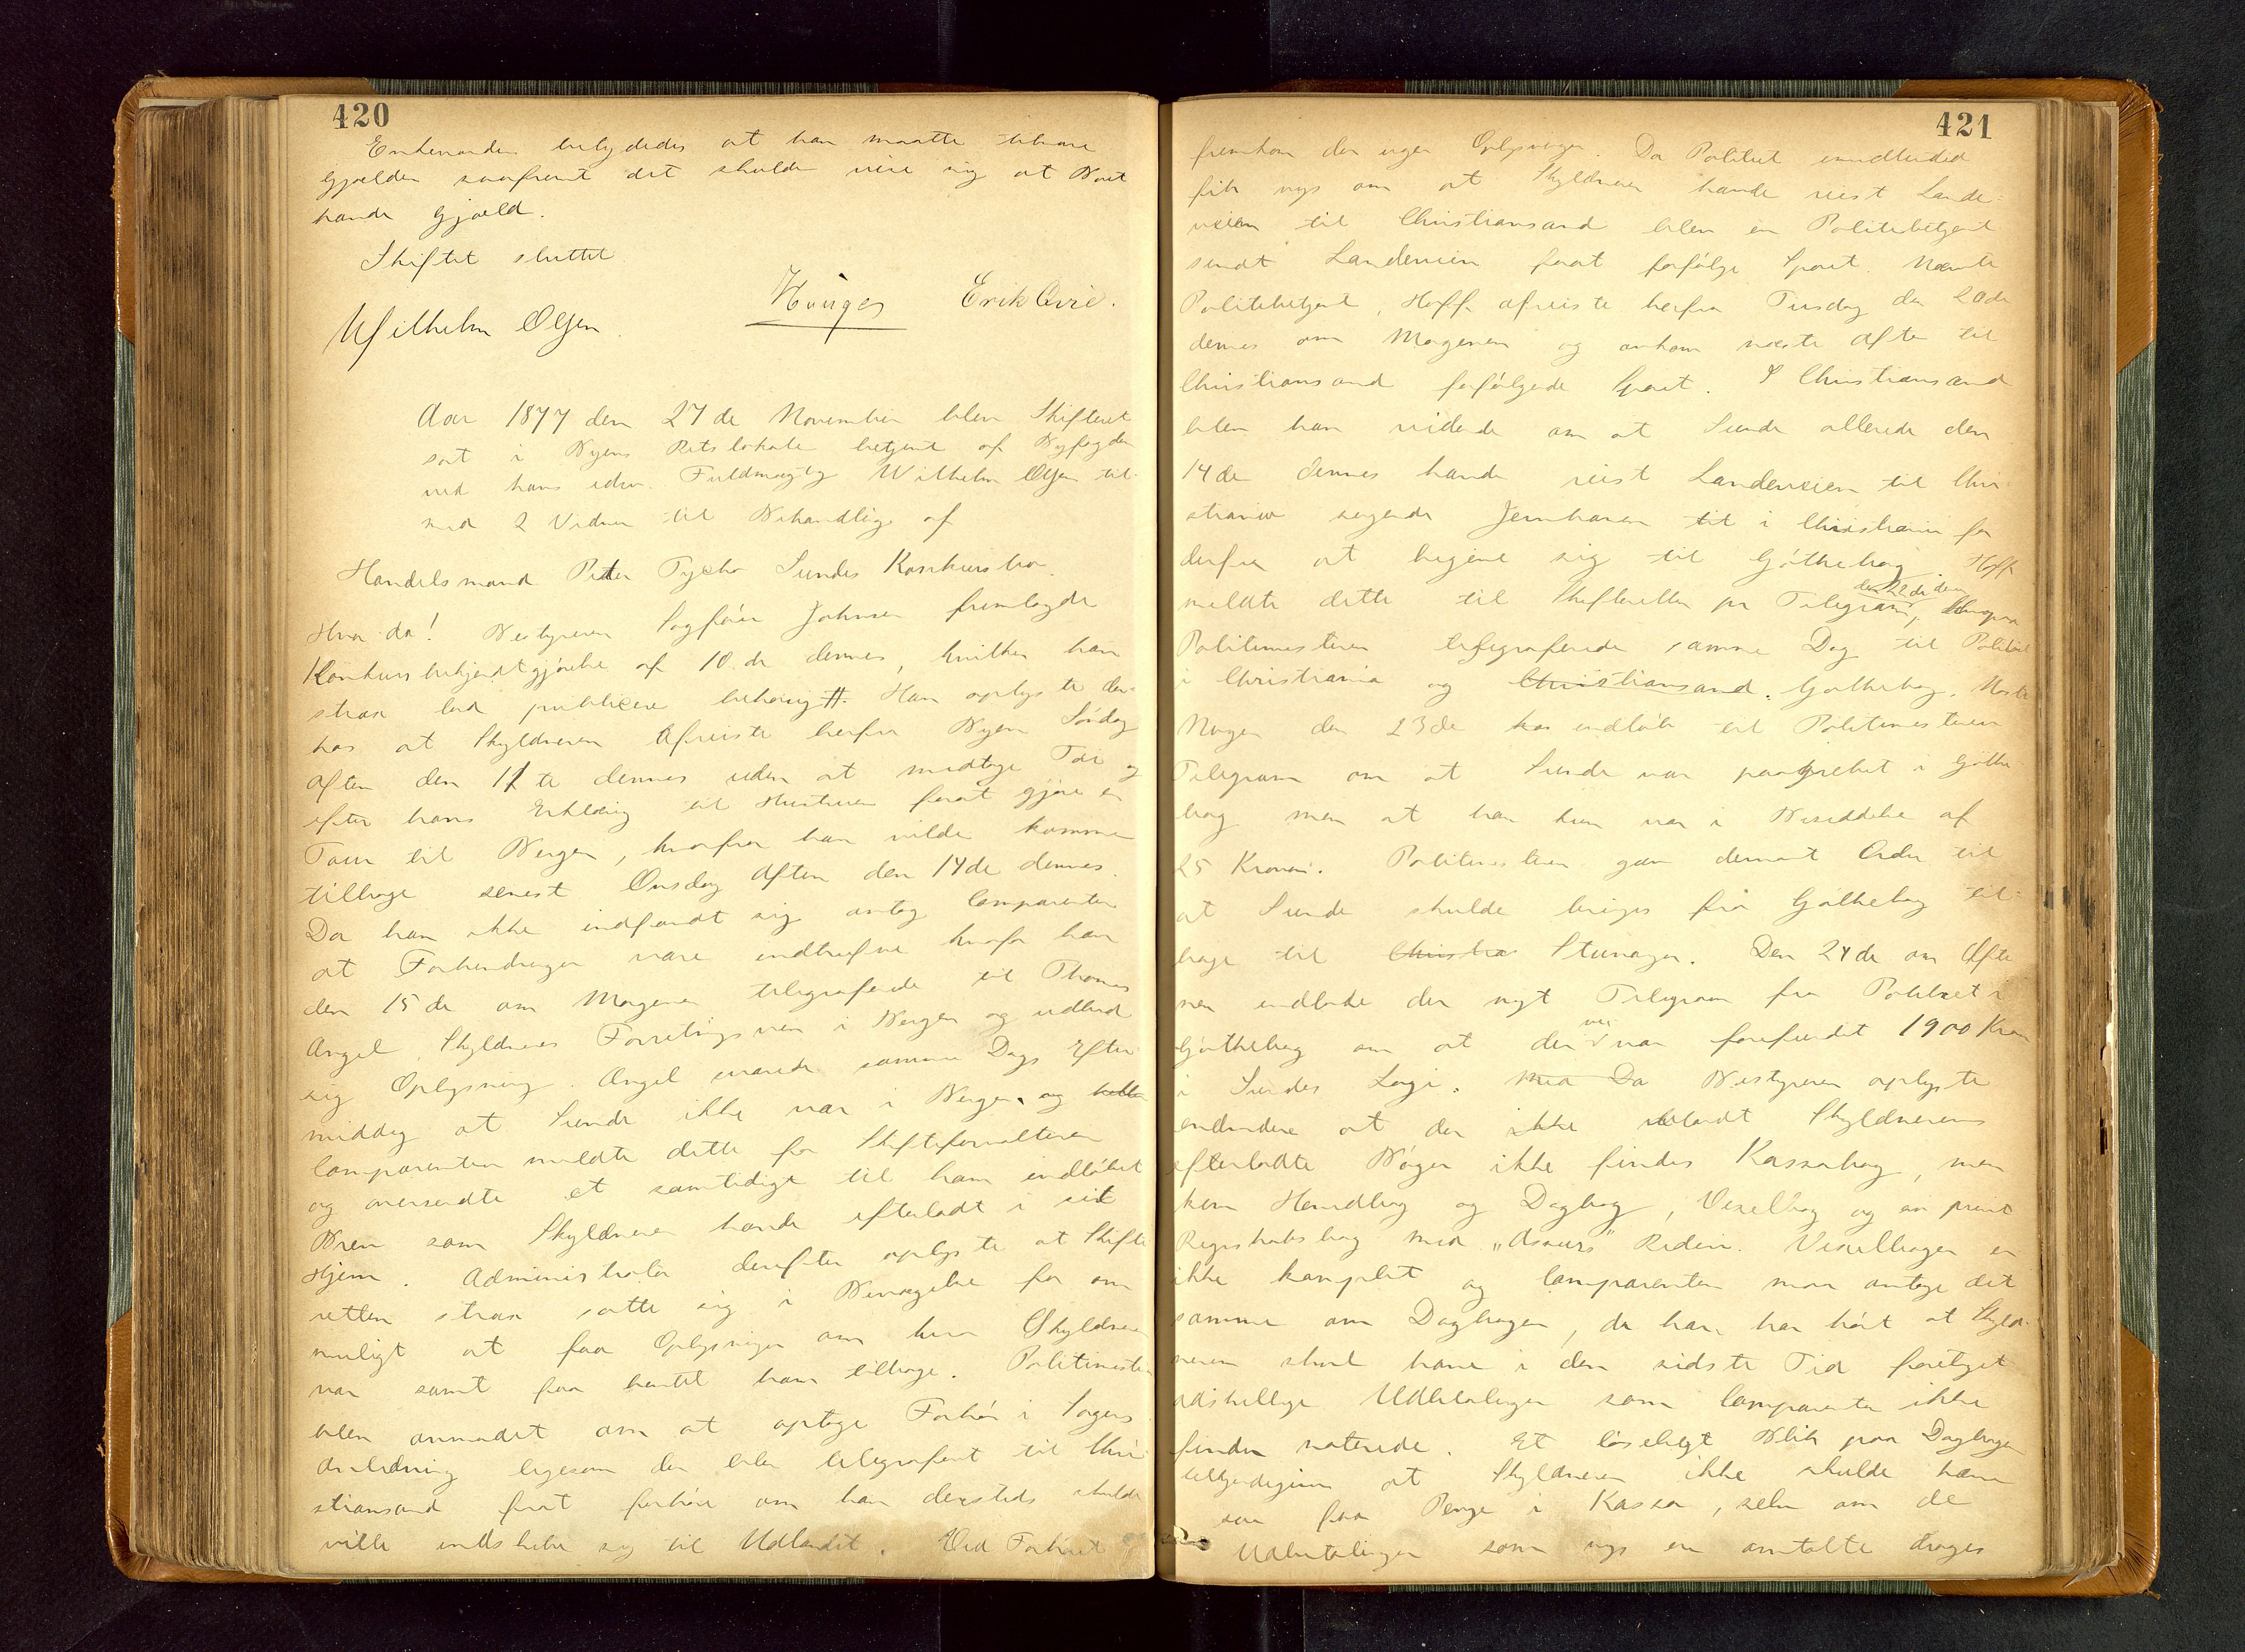 420
Enkemanden betydedes at han maatte tilsvare
Gjælden saafremt det skulde vise sig at Boet
havde Gjæld.
Skiftet sluttet
Wilhelm Olsen Hauges Erik Ovie.
Aar 1877 den 27de November blev Skifteret
sat i Byens Retslokale betjent af Byfogden
ved hans edsv. Fuldmægtig Wilhelm Olsen til
med 2 Vidner til Behandling af
Handelsmand Peter Tycho Sundes Konkursbo.
Hvor da! Bestyreren Sagfører Johnsen fremlagde
Konkursbekjendtgjørelse af 10de dennes, hvilken han
strax lod publicere behørig #. Han oplyste der-
hos at Skyldneren afreiste herfra Byen Søndag
Aften den 11te dennes uden at medtage Tøi og
efter hans Erklæring til Hustruen forat gjøre en
Tour til Bergen, hvorfra han vilde komme
tilbage senest Onsdag Aften den 14de dennes.
Da han ikke indfandt sig antog Comparenten
at Forhindringer vare indtrufne hvorfor han
den 15de om Morgenen telegraferede til Thomas
Angel, Skyldneres Forretningsven i Bergen og udbad
sig Oplysning. Angel svarede samme Dags Efter
middag at Sunde ikke var i Bergen, og
Comparenten meldte dette for Skifteforvalteren
og oversendte et samtidigt til ham indløbet
Brev som Skyldneren havde efterladt i sit
Hjem. Administrator derefter oplyste at Skifte
retten strax satte sig i Bevægelse for om
muligt at faa Oplysninger om hvor Skyldneren
var samt faa hentet ham tilbage. Politimesteren
blev anmodet om at optage Forhør i Sagens
Anledning ligesom der blev telegraferet til Chri
stiansand forat forhøre om han dersteds skulde
ville indskibe sig til Udlandet. Ved Forhøret
421
fremkom der ingen Oplysninger. Da Politiet imidlertid
fik nys om at Skyldneren havde reist Lande-
veien til Christiansand blev en Politibetjent
sendt Landeveien forat forfølge Sporet. Nævnte
Politibetjent, Hoff afreiste herfra Tirsdag den 20de
dennes om Morgenen og ankom næste Aften til
Christiansand forfølgende Sporet. I Christiansand
blev han vidende om at Sunde allerede den
14de dennes havde reist Landeveien til Chri
stiania søgende Jernbanen til i Christiania for
derfra at begive sig til Gøtheborg. Hoff
meldte dette til Skifteretten pr Telegram den 22de dennes, hvorpaa
Politimesteren telegraferede samme Dag til Politiet
i Christiania og Christiansand. Gøtheborg. Næste
Morgen den 23de kom indløb til Politimesteren
Telegram om at Sunde var paagrebet i Gøthe
borg men at han kun var i Besiddelse af
25 Kroner. Politimesteren gav dernæst Ordre til
at Sunde skulde bringes fra Gøtheborg til-
bage til Christia Stavanger. Den 24de om Afte
nen indløb der nyt Telegram fra Politiet i
Gøtheborg om at der var forefundet 1900 Kroner
i Sundes Logi. Med Da Bestyreren oplyste
endvidere at der ikke iblandt Skyldnerens
efterladte Bøger ikke findes Kassabog, men
kun Hovedbog og Dagbog, Vexelbog og en privat
Regnskabsbog med "Assurs" Rederi. Vexelbogen er
ikke komplet og Comparenten maa antage det
samme om Dagbogen, da han har hørt at Skyld-
neren skal have i den sidste Tid foretaget
adskillige Udbetalinger som Comparenten ikke
finder noterede. Et løseligt Blik paa Dagbogen
tilkjendegiver at Skyldneren ikke skulde have
saa faa Penge i Kassa, selv om de
Udbetalinger som nys er omtalte drages